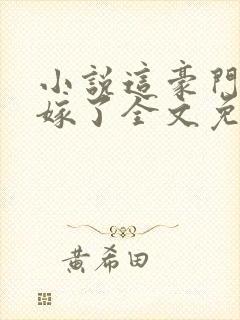 小說這豪門
嫁了全文免
黃希田